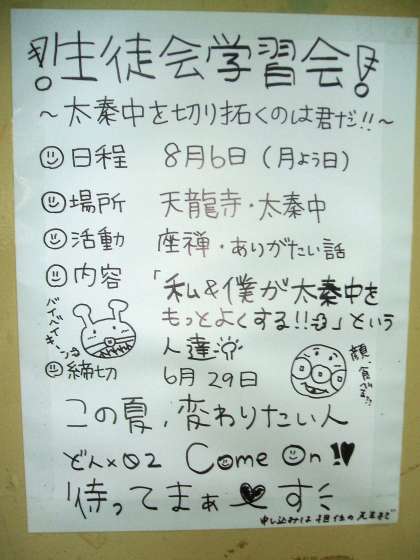 !生徒会学習会!
~太秦中を切り拓くのは君だ!!~
日程 8月6日(月よう日)
場所 天龍寺・太秦中
活動 座禅・ありがたい話
内容 「私&僕が太秦中を
もっとよくする!!」という
人達
バイバイキーン
締切 6月29日
顔、食べる?
この夏、変わりたい人
どん×02 Come On!
待ってまぁ♥す
申し込みは担任の先生まで